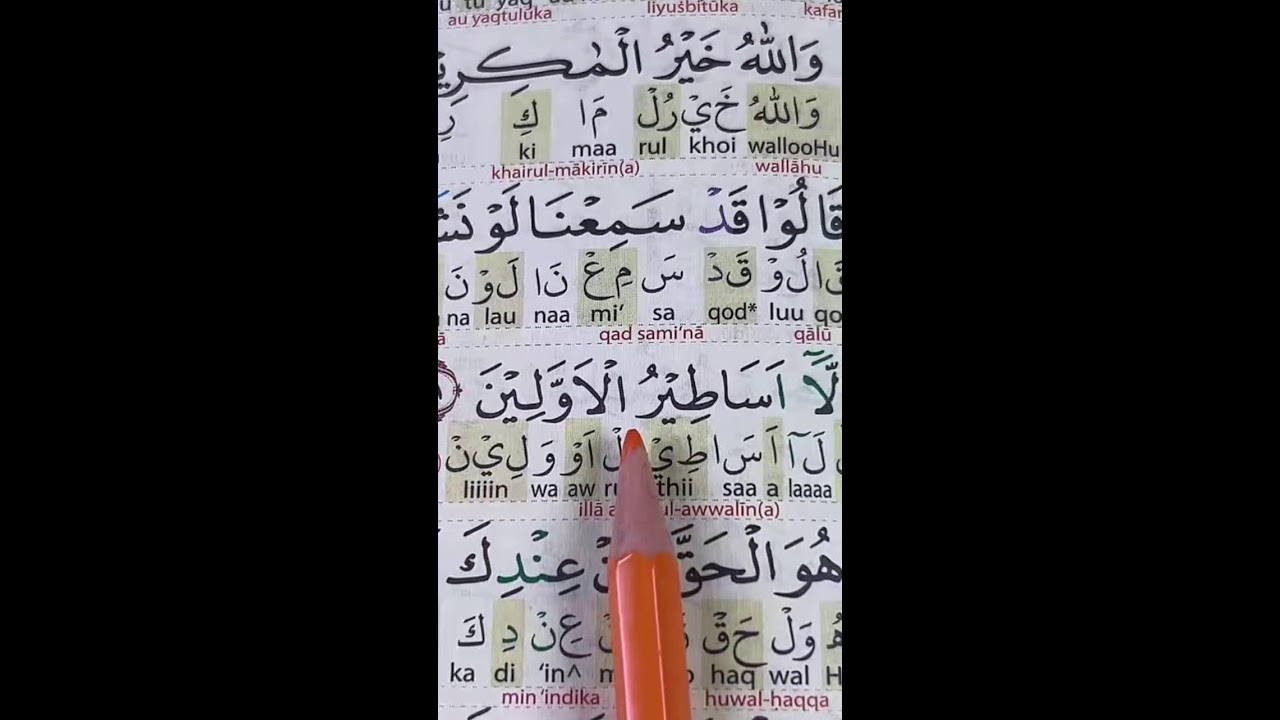 au yaqtulūka liyuṡbitūka
وَاللّٰهُ خَيْرُ الْمٰكِرِيْ
وَاللّٰهُ خَيْ رُلْ مَا كِ رِ
ki maa rul khoi wallooHu
khairul-mākirīn(a) wallāhu
قَالُوْا قَدْ سَمِعْنَا لَوْ نَشَ
قَالُوْ قَدْ سَ مِعْ نَا لَوْ نَ
na lau naa mi‘ sa qod* luu qo
qad sami‘nā qālū
لَّآ اَسَاطِيْرُ الْاَوَّلِيْنَ
لَآ اَ سَا طِيْ لْ اَوْ وَ لِيْنْ
liiiin wa aw thii saa a laaaa
illā ul-awwalīn(a)
هُوَ الْحَقَّ عِنْدِكَ
هُ وَلْ حَقْ عِنْ دِ كَ
ka di ‘in^ haq wal H
min ‘indika huwal-ḥaqqa